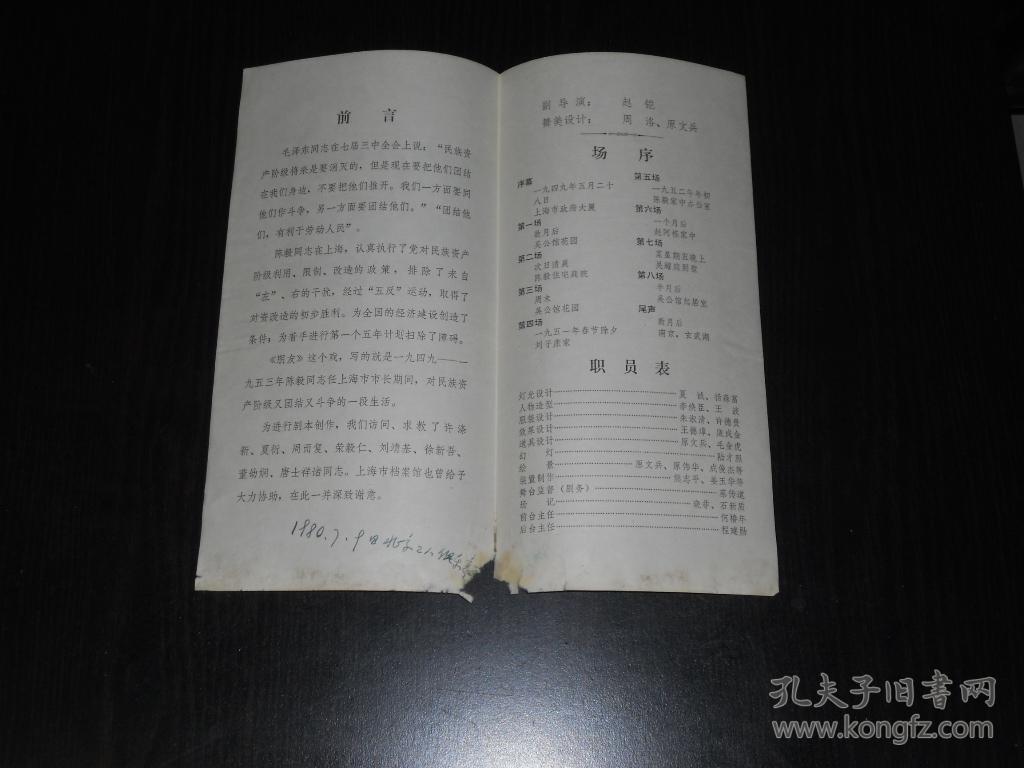 前言
毛泽东同志在七届三中全会上说：“民族资
产阶级将来是要消灭的，但是现在要把他们团结
在我们身边，不要把他们推开。我们一方面要同
他们作斗争，另一方面要团结他们。”“团结他
们，有利于劳动人民”。
陈毅同志在上海，认真执行了党对民族资产
阶级利用、限制、改造的政策，排除了来自
“左”、右的干扰，经过“五反”运动，取得了
对资改造的初步胜利。为全国的经济建设创造了
条件；为着手进行第一个五年计划扫除了障碍。
《朋友》这个戏，写的就是一九四九——一
九五三年陈毅同志任上海市市长期间，对民族资
产阶级又团结又斗争的一段生活。
为进行剧本创作，我们访问、求教了许涤
新、夏衍、周而复、荣毅仁、刘靖基、徐新吾、
董幼娴、唐士祥诸同志。上海市档案馆也曾给予
大力协助，在此一并深致谢意。
1980.7.9日北京工人俱乐部
副导演： 赵锐
舞美设计： 周洛、原文兵
场序
序幕
一九四九年五月二十
八日
上海市政府大厦
第一场
数月后
吴公馆花园
第二场
次日清晨
陈毅住宅庭院
第三场
周末
吴公馆花园
第四场
一九五一年春节除夕
刘子康家
第五场
一九五二年年初
陈毅家中办公室
第六场
一个月后
赵阿根家中
第七场
某星期五晚上
吴耀庭别墅
第八场
半月后
吴公馆起居室
尾声
数月后
南京，玄武湖
职员表
灯光设计……夏诚、杨森富
人物造型……李焕臣、王波
服装设计……朱淑清、许德贵
效果设计……王德璋、庞成金
道具设计……原文兵、毛金虎
幻灯……陆才照
绘景……原文兵、原伟华、成俊杰等
装置制作……姚志平、姜玉华等
舞台监督（剧务）……蔡传道
场记……晓普、石新质
前台主任……何椿年
后台主任……程建勋
孔夫子旧书网
www.kongfz.com